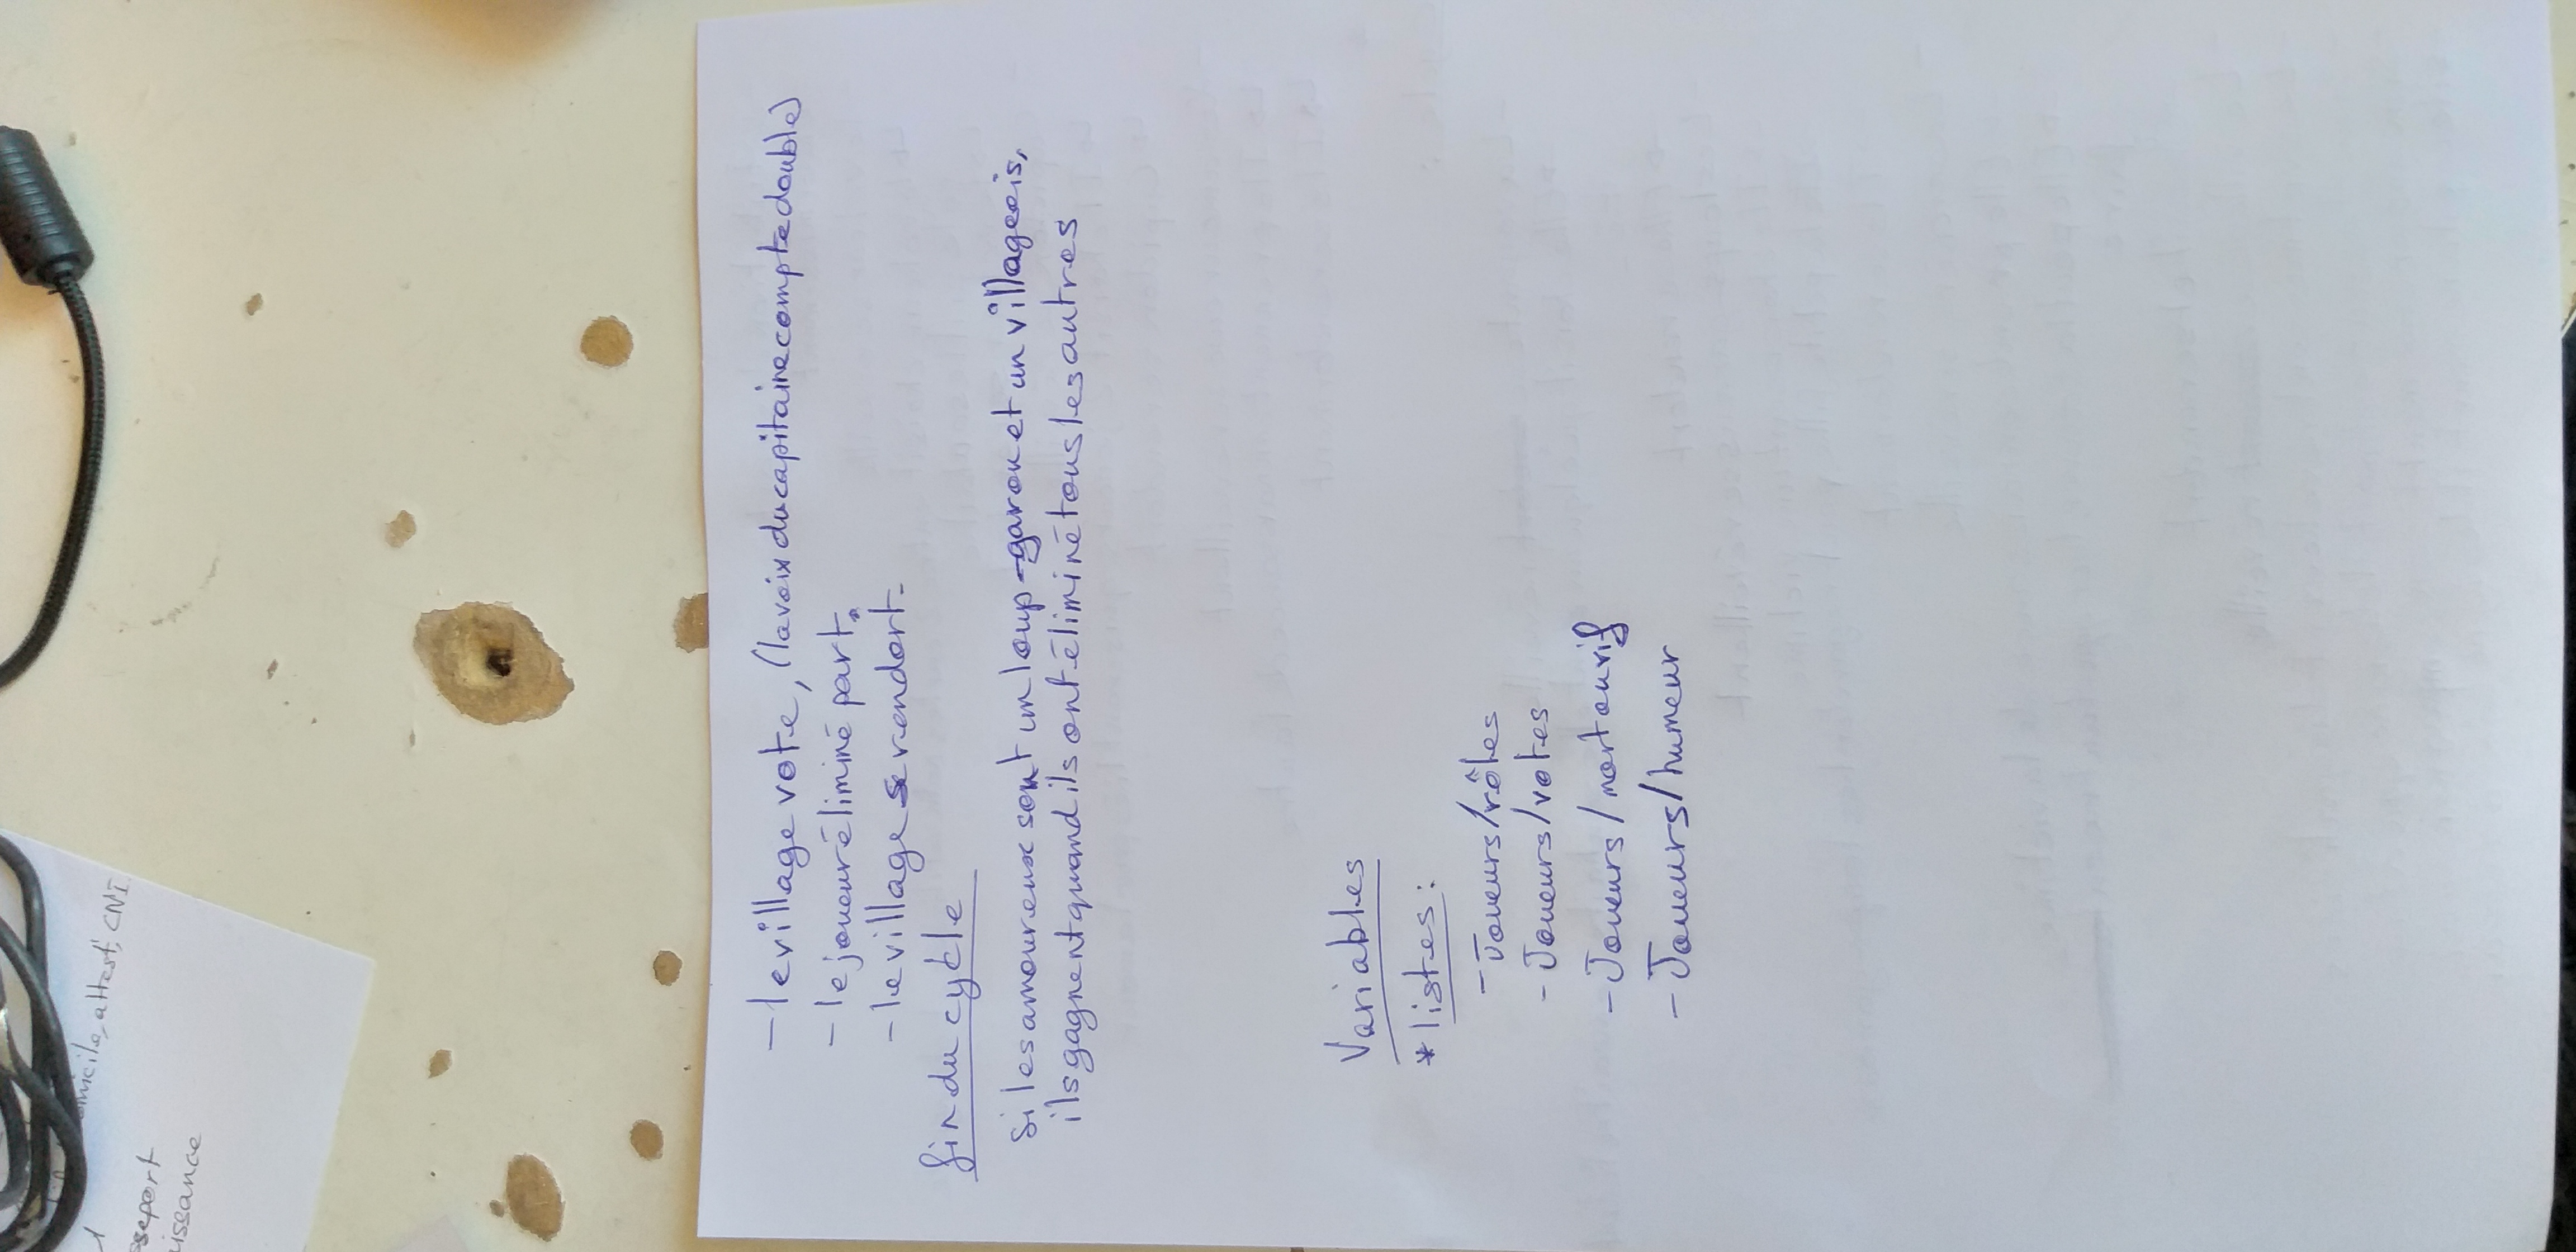 omicile, attest, CNI.
1
sseport
issance
- le village vote, (la voix du capitaine compte double)
- le joueur éliminé part.
- le village se rendort.
fin du cycle
si les amoureux sont un loup-garou et un villageois,
ils gagnent quand ils ont éliminé tous les autres
Variables
* listes :
- Joueurs/rôles
- Joueurs/votes
- Joueurs/mort ou vif
- Joueurs/humeur